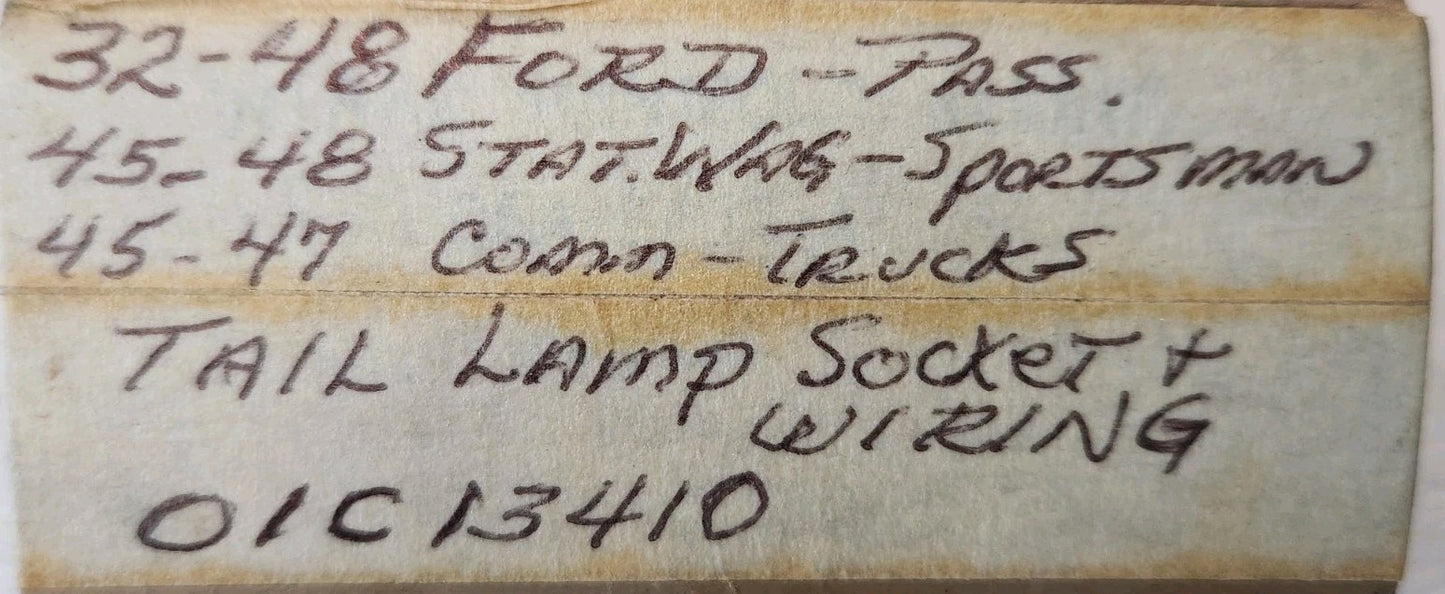 32-48 FORD - PASS.
45-48 STAT. WAG - SPORTSMAN
45-47 Comm - TRUCKS
TAIL LAMP SOCKET +
WIRING
01C 13410